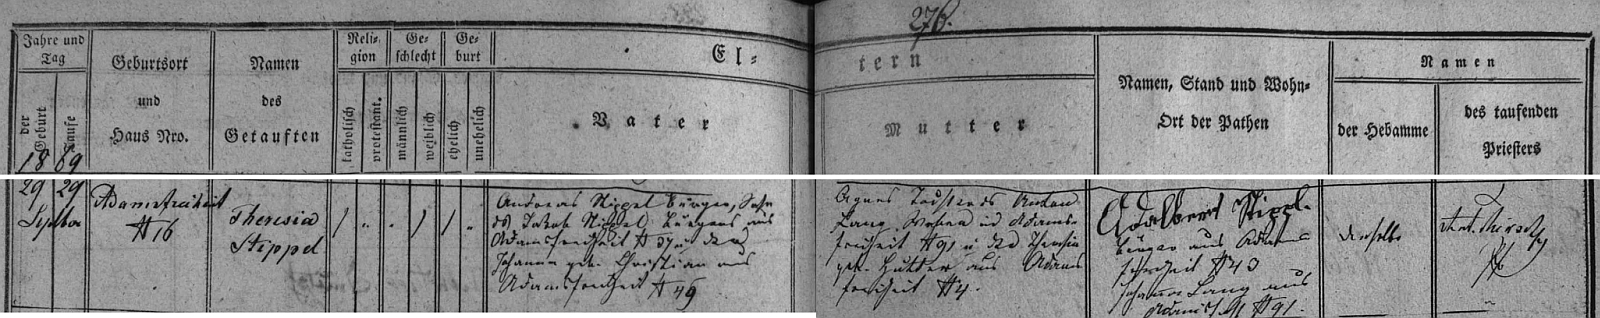 276.
Jahre und
Tag
der
Geburt
Taufe
Geburtsort
und
Haus Nro.
Namen
des
Getauften
Reli-
gion
katholisch
protestant.
Ge-
schlecht
männlich
weiblich
Ge-
burt
ehelich
unehelich
El-
tern
Vater
Mutter
Namen, Stand und Wohn-
Ort der Pathen
Namen
der Hebamme
des taufenden
Priesters
18 69
29 29
Septber
Adamsfreiheit
# 16
Theresia
Steppel
Andreas Steppel Bürger, Sohn
des Jakob Steppel Bürgers aus
Adamsfreiheit # 57 u der
Johanna geb. Christian aus
Adamsfreiheit # 49
Agnes Tochter des Anton
Lang in Adams-
freiheit # 91 u der Theresia
geb. Hutter aus Adams
freiheit # 4.
Adalbert Steppl
Bürger aus Adams
freiheit # 43
Johanna Lang aus
# 91.
dieselbe
Ant.